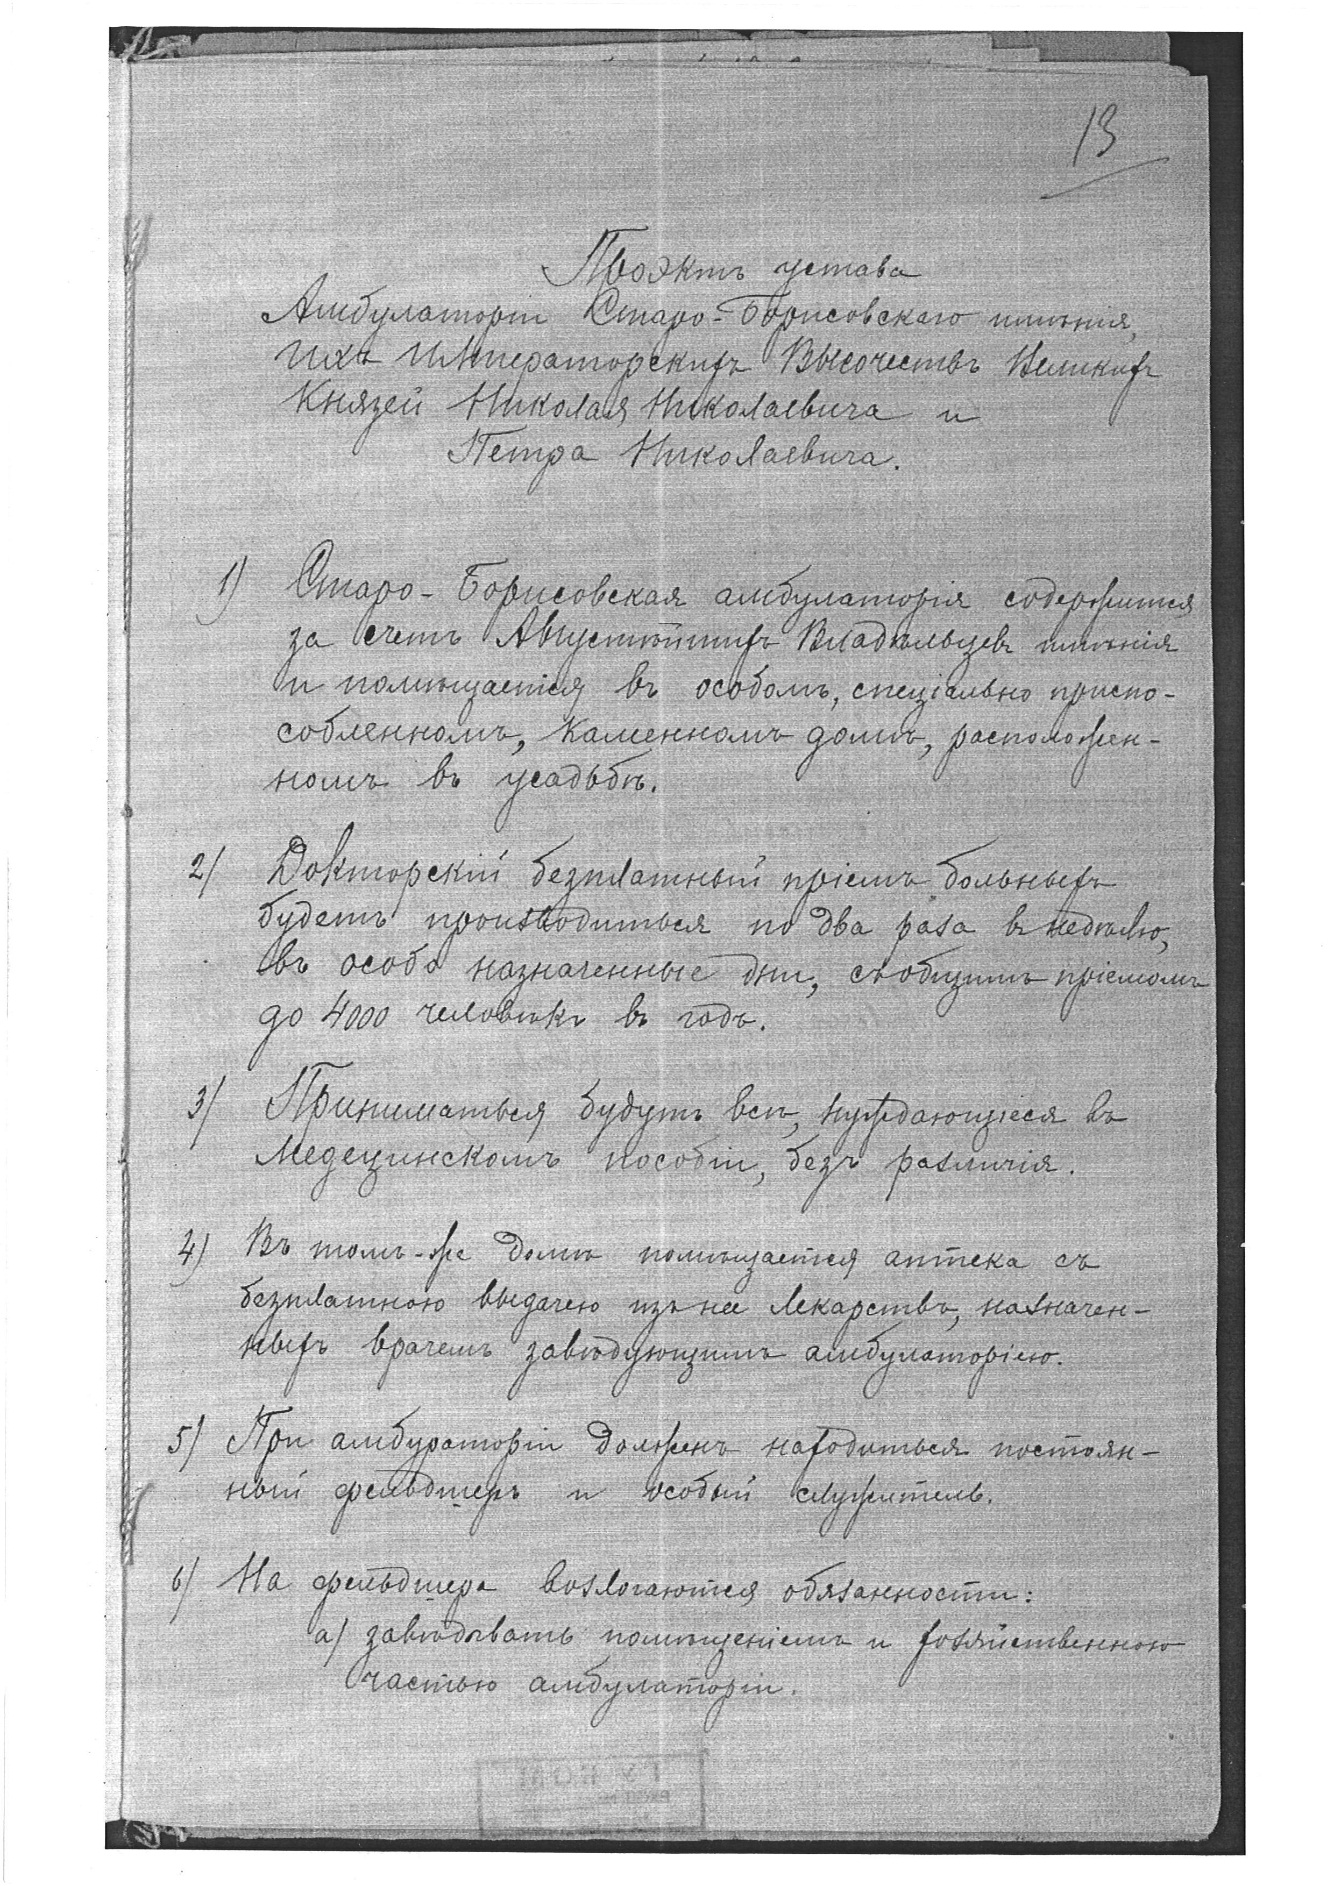 13
Проэктъ устава
Амбулаторіи Старо-Борисовскаго имѣнія,
Ихъ Императорскихъ Высочествъ Великихъ
Князей Николая Николаевича и
Петра Николаевича.
1) Старо-Борисовская амбулаторія содержится
за счетъ Августѣйшихъ Владѣльцевъ имѣнія
и помѣщается въ особомъ, спеціально приспо-
собленномъ, каменномъ домѣ, расположен-
номъ въ усадьбѣ.
2) Докторскій безплатный пріемъ больныхъ
будетъ производиться по два раза въ недѣлю,
въ особо назначенные дни, съ общимъ пріемомъ
до 4000 человѣкъ въ годъ.
3) Приниматься будутъ всѣ, нуждающіеся въ
медецинскомъ пособіи, безъ различія.
4) Въ томъ-же домѣ помѣщается аптека съ
безплатною выдачею изъ нее лекарствъ, назначен-
ныхъ врачемъ завѣдующимъ амбулаторіею.
5) При амбураторіи долженъ находиться постоян-
ный фельдшеръ и особый служитель.
6) На фельдшера возлогаются обязанности:
а) завѣдывать помѣщеніемъ и хозяйственною
частью амбулаторіи.